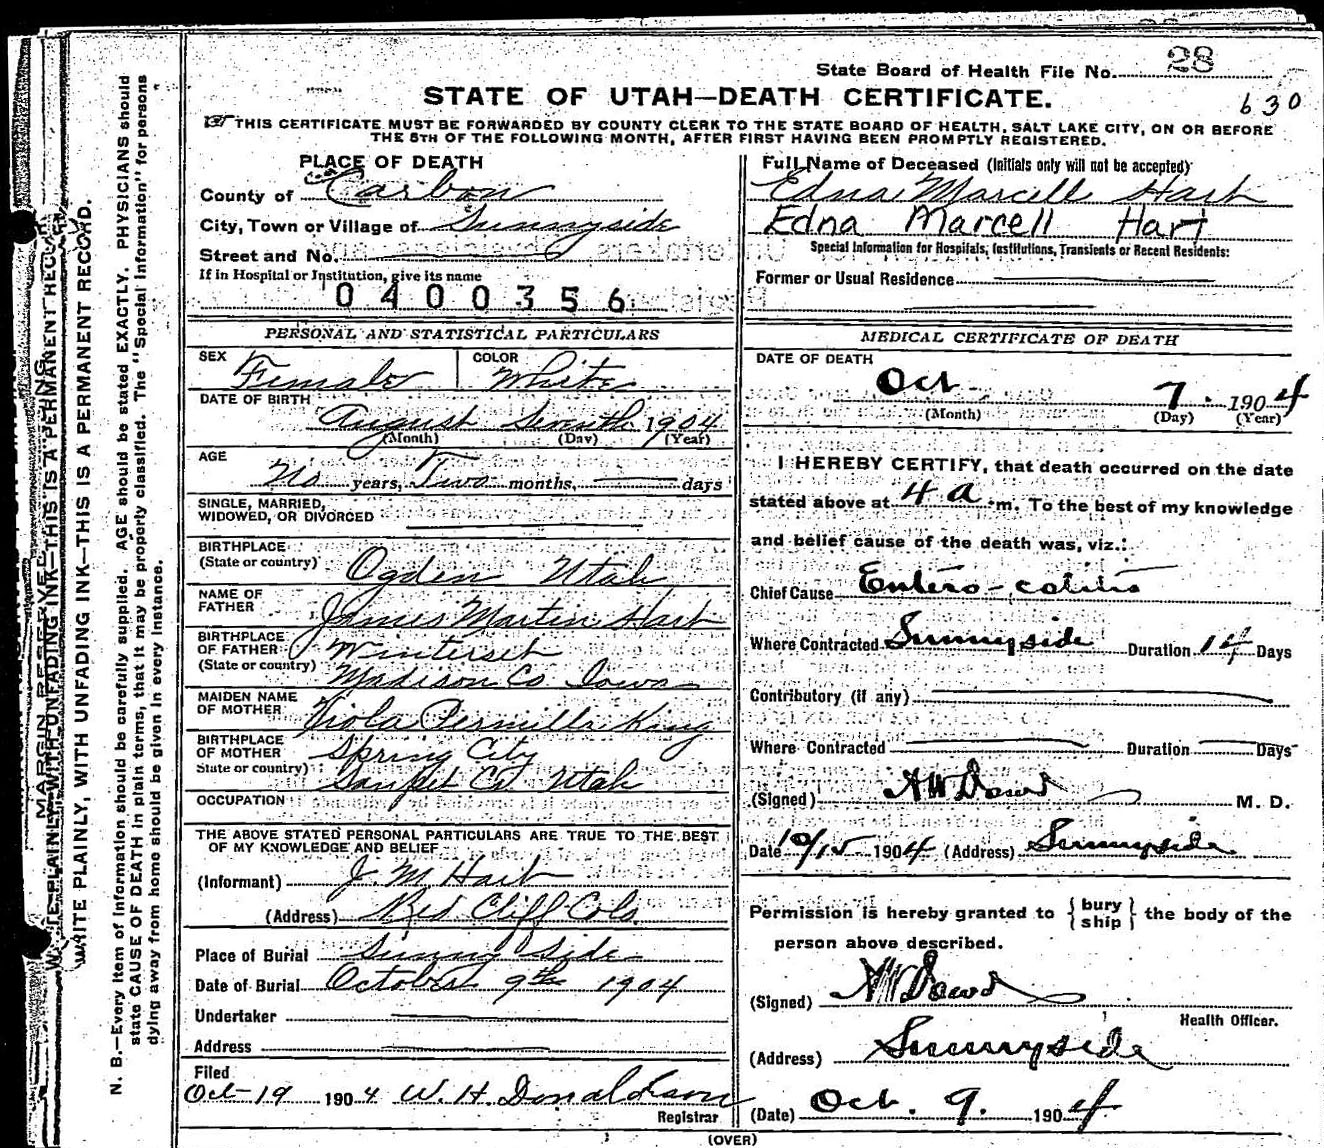 State Board of Health File No. 28
STATE OF UTAH—DEATH CERTIFICATE.
630
THIS CERTIFICATE MUST BE FORWARDED BY COUNTY CLERK TO THE STATE BOARD OF HEALTH, SALT LAKE CITY, ON OR BEFORE
THE 5TH OF THE FOLLOWING MONTH, AFTER FIRST HAVING BEEN PROMPTLY REGISTERED.
PLACE OF DEATH
County of Carbon
City, Town or Village of Sunnyside
Street and No.
If in Hospital or Institution, give its name
0400356
PERSONAL AND STATISTICAL PARTICULARS
SEX Female COLOR White
DATE OF BIRTH August Seventh 1904
(Month) (Day) (Year)
AGE No years, Two months, days
SINGLE, MARRIED,
WIDOWED, OR DIVORCED
BIRTHPLACE
(State or country) Ogden Utah
NAME OF
FATHER James Martin Hart
BIRTHPLACE
OF FATHER Winterset
(State or country) Madison Co. Iowa
MAIDEN NAME
OF MOTHER Viola Permilla King
BIRTHPLACE
OF MOTHER Spring City
State or country) Sanpet Co. Utah
OCCUPATION
THE ABOVE STATED PERSONAL PARTICULARS ARE TRUE TO THE BEST
OF MY KNOWLEDGE AND BELIEF
(Informant) J. M. Hart
(Address) Red Cliff Colo
Place of Burial Sunny side
Date of Burial October 9th 1904
Undertaker
Address
Filed
Oct 19 1904 W. H. Donaldson
Registrar
Full Name of Deceased (Initials only will not be accepted)
Edna Marcell Hart
Edna Marcell Hart
Special Information for Hospitals, Institutions, Transients or Recent Residents:
Former or Usual Residence
MEDICAL CERTIFICATE OF DEATH
DATE OF DEATH
Oct 7. 1904
(Month) (Day) (Year)
I HEREBY CERTIFY, that death occurred on the date
stated above at 4 a .m. To the best of my knowledge
and belief cause of the death was, viz.:
Chief Cause Entero-colitis
Where Contracted Sunnyside Duration 14 Days
Contributory (if any)
Where Contracted Duration Days
(Signed) A W Dowd M. D.
Date 10/15 1904 (Address) Sunnyside
Permission is hereby granted to { bury ship } the body of the
person above described.
(Signed) A W Dowd
Health Officer.
(Address) Sunnyside
(Date) Oct. 9. 1904
(OVER)
MARGIN RESERVED
WRITE PLAINLY, WITH UNFADING INK—THIS IS A PERMANENT RECORD.
N. B.—Every item of information should be carefully supplied. AGE should be stated EXACTLY. PHYSICIANS should
state CAUSE OF DEATH in plain terms, that it may be properly classified. The "Special Information" for persons
dying away from home should be given in every instance.